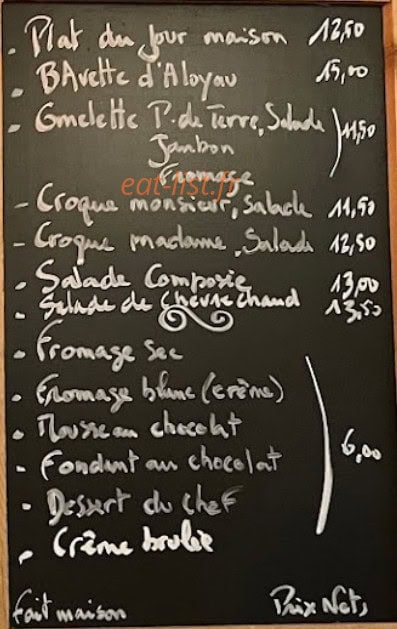 - Plat du Jour maison 12,50
- BAvette d'Aloyau 15,00
- Omelette P. de Terre, Salade
Jambon 11,50
Fromage
eat-list.fr
- Croque monsieur, Salade 11,50
- Croque madame, Salade 12,50
- Salade Composée 13,00
- Salade de chèvre chaud 13,50
- Fromage sec
- Fromage blanc (crème)
- Mousse au chocolat
- Fondant au chocolat 6,00
- Dessert du chef
- Crème brulée
fait maison Prix Nets